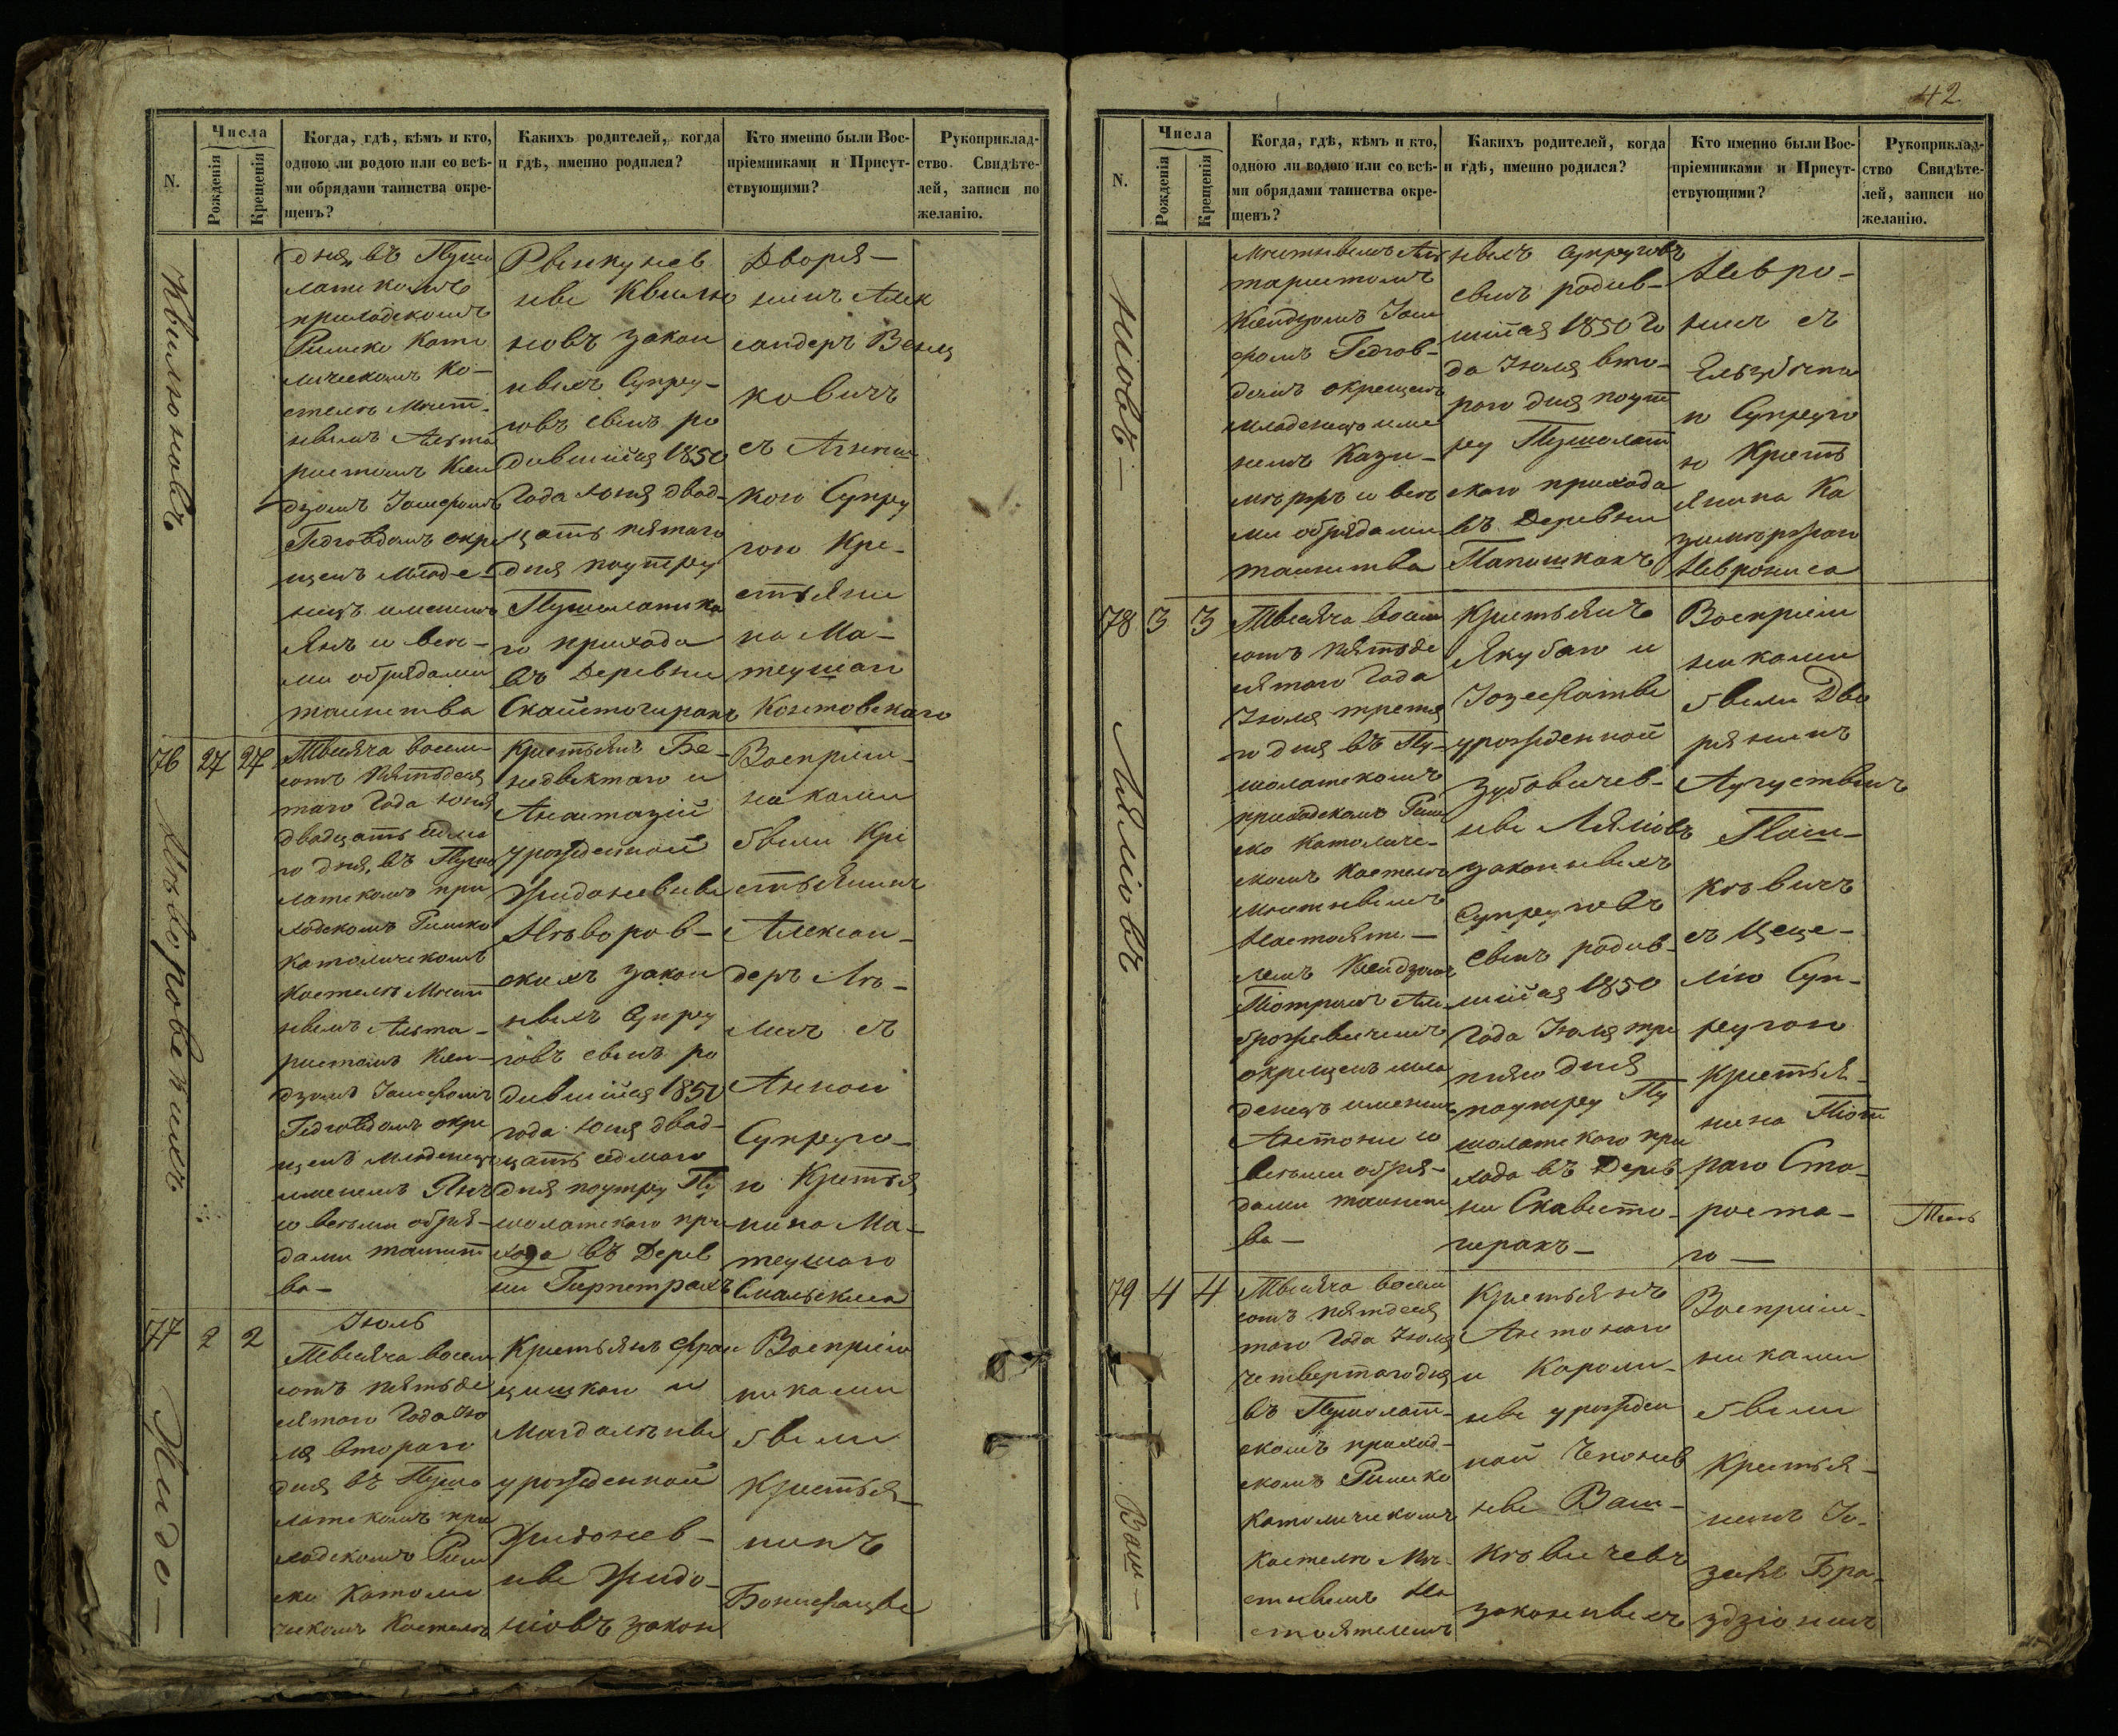 N.
Числа
Рожденія
Крещенія
Когда, гдѣ, кѣмъ и кто,
одною ли водою или со всѣ-
ми обрядами таинства окре-
щенъ?
Какихъ родителей, когда
и гдѣ, именно родился?
Кто именно были Вос-
пріемниками и Присут-
ствующими?
Рукоприклад-
ство Свидѣте-
лей, записи по
желанію.
Квилюновъ
дня, въ Пушо
латскомъ
приходскомъ
Римско Като
лическомъ Ко-
стелѣ Мѣст-
нымъ Альта
ристомъ Ксен
дзомъ Іосифомъ
Гедговдомъ окре
щенъ младе-
нецъ именемъ
Янъ и всѣ-
ми обрядами
таинства
Рынкунев
ны Квилю
новъ закон
ныхъ Супру-
говъ сынъ ро
дившійся 1850
Года Юня двад-
цать пятаго
дня поутру
Пушолатска
го прихода
въ Деревни
Скайстогирахъ
Дворя-
нинъ Алек
сандеръ Венц
ковичъ
съ Агнеш
кою Супру
гою Кре-
стьяни
на Ма-
теушаго
Контовскаго
76 27 27
Тысяча восем-
сотъ пятьдеся
таго Года Юня
двадцать седма
го дня, въ Пушо
латскомъ при
ходскомъ Римско
Католическомъ
Костелѣ Мѣст
нымъ Альта-
ристомъ Ксен-
дзомъ Іосифомъ
Гедговдомъ окре
щенъ младенецъ
именемъ Янъ
и всѣми обря-
дами таинст
ва-
Крестьянъ Бе-
недыктаго и
Анастазіи
урожденной
Жидоневны
Яворов-
скихъ закон
ныхъ Супру
говъ сынъ ро
дившійся 1850
года Юня двад-
цать седмаго
дня поутру Пу
шолатскаго при
хода въ Дерев
ни Гирпетрахъ
Воспріем-
никами
были Кре
стьянинъ
Алексан-
деръ
съ
Анною
Супруго-
ю Крестья
нина Ма-
теушаго
77 2 2
Жидо-
Іюль
Тысяча восем
сотъ пятьде
сятаго Года Ію
ля втораго
дня въ Пушо
латскомъ при
ходскомъ Рим
ско Католи
ческомъ Костелѣ
Крестьянъ Фран
цишка и
Магдалѣны
урожденной
Жидонев-
ны Жидо-
ніовъ закон
Воспріем
никами
были
Крестья-
нинъ
Бонифацы
42
N.
Числа
Рожденія
Крещенія
Когда, гдѣ, кѣмъ и кто,
одною ли водою или со всѣ-
ми обрядами таинства окре-
щенъ?
Какихъ родителей, когда
и гдѣ, именно родился?
Кто именно были Вос-
пріемниками и Присут-
ствующими?
Рукоприклад-
ство Свидѣте-
лей, записи по
желанію.
ніовъ-
Мѣстнымъ Аль
таристомъ
Ксендзомъ Іоси
фомъ Гедгов-
домъ окрещенъ
младенецъ име
немъ Кази-
мѣръ и всѣ
ми обрядами
таинства
ныхъ Супруговъ
сынъ родив-
шійся 1850 Го
да Іюля вто-
раго дня поут
ру Пушолат
скаго прихода
въ Деревни
Папишкахъ
Невро-
нисъ съ
Эльзбѣта
ю Супруго
ю Кресть
янина Ка
зимѣржаго
Неврониса
78 3 3
Ляліовъ
Тысяча восем
сотъ пятьде
сятаго Года
Іюля третя
го дня въ Пу-
шолатскомъ
приходскомъ Рим
ско Католиче-
скомъ Костелѣ
Мѣстнымъ
Настояте-
лемъ Ксендзомъ
Піотромъ Ам
брожевичемъ
окрещенъ мла
денецъ именемъ
Антони и
всѣми обря-
дами таинст
ва-
Крестьянъ
Якубаго и
Іозефаты
урожденной
Зубовичев-
ны Ляліовъ
законныхъ
Супруговъ
сынъ родив-
шійся 1850
Года Іюля тре
тяго дня
поутру Пу
шолатскаго при
хода въ Дерев
ни Скаисто-
гирахъ-
Воспріем
никами
были Дво
рянинъ
Аугустынъ
Паш-
кѣвичъ
съ Цеце-
лію Суп-
ругою
Крестья-
нина Піот
раго Ста-
роста-
го-
79 4 4
Ваш-
Тысяча восем
сотъ пятдеся
таго Года Іюля
четвертаго дня
въ Пушолат-
скомъ приход-
скомъ Римско
Католическомъ
Костелѣ Мѣ-
стнымъ На
стоятелемъ
Крестьянъ
Антонаго
и Кароли-
ны урожден
ной Чепонев
ны Ваш-
кѣвичевъ
законныхъ
Воспріем-
никами
были
Крестья-
нинъ Іо-
зафъ Бра-
здзіонисъ